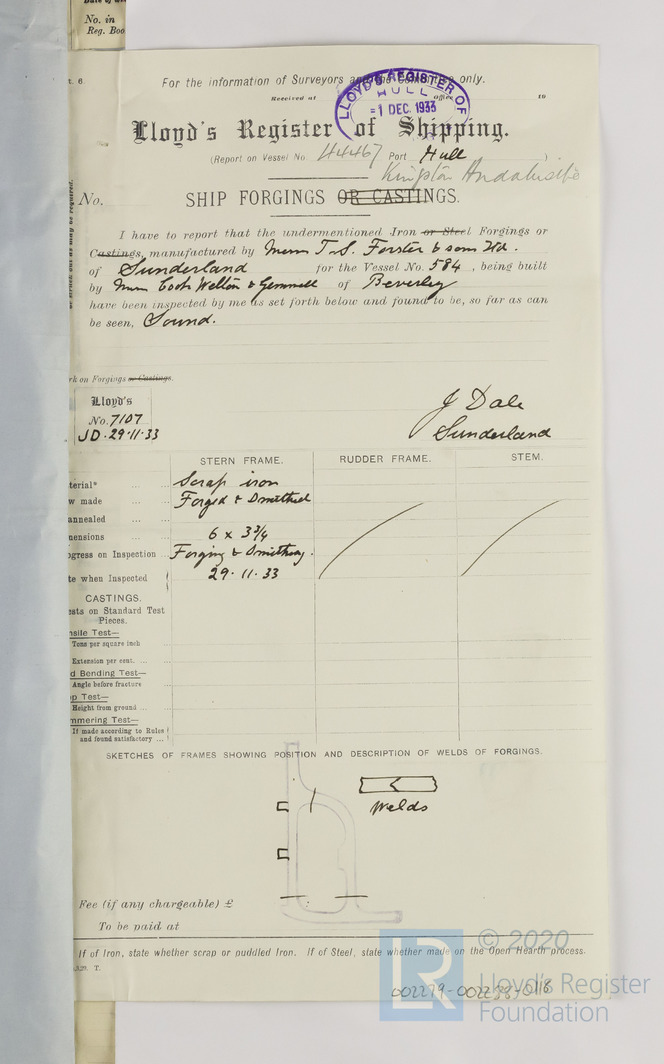 No. in
Reg. Boo
For the information of Surveyors and the Committee only.
Received at
office
19
LLOYD'S REGISTER OF
HULL
-1 DEC. 1933
Lloyd's Register of Shipping.
(Report on Vessel No. 44467 Port Hull )
Kingston Andalusite
No. SHIP FORGINGS OR CASTINGS.
I have to report that the undermentioned Iron or Steel Forgings or
Castings, manufactured by Messrs T. S. Forster & sons Ltd.
of Sunderland for the Vessel No. 584, being built
by Messrs Cook Welton & Gemmell of Beverley
have been inspected by me as set forth below and found to be, so far as can
be seen, Sound.
rk on Forgings or Castings.
Lloyd's
No. 7107
JD. 29.11.33
J Dale
Sunderland
STERN FRAME. RUDDER FRAME. STEM.
terial* ... ... Scrap iron
w made ... ... Forged & Smithed
annealed ... ...
nensions ... ... 6 x 3 3/4
ogress on Inspection ... Forging & Smithing.
te when Inspected 29.11.33
CASTINGS.
ests on Standard Test
Pieces.
nsile Test—
Tons per square inch
Extension per cent. ... ...
d Bending Test—
Angle before fracture ...
op Test—
Height from ground ... ...
mmering Test—
If made according to Rules
and found satisfactory ...
SKETCHES OF FRAMES SHOWING POSITION AND DESCRIPTION OF WELDS OF FORGINGS.
Welds
Fee (if any chargeable) £
To be paid at
If of Iron, state whether scrap or puddled Iron. If of Steel, state whether made on the Open Hearth process.
© 2020
LR
Lloyd's Register
Foundation
002279-002238-0118